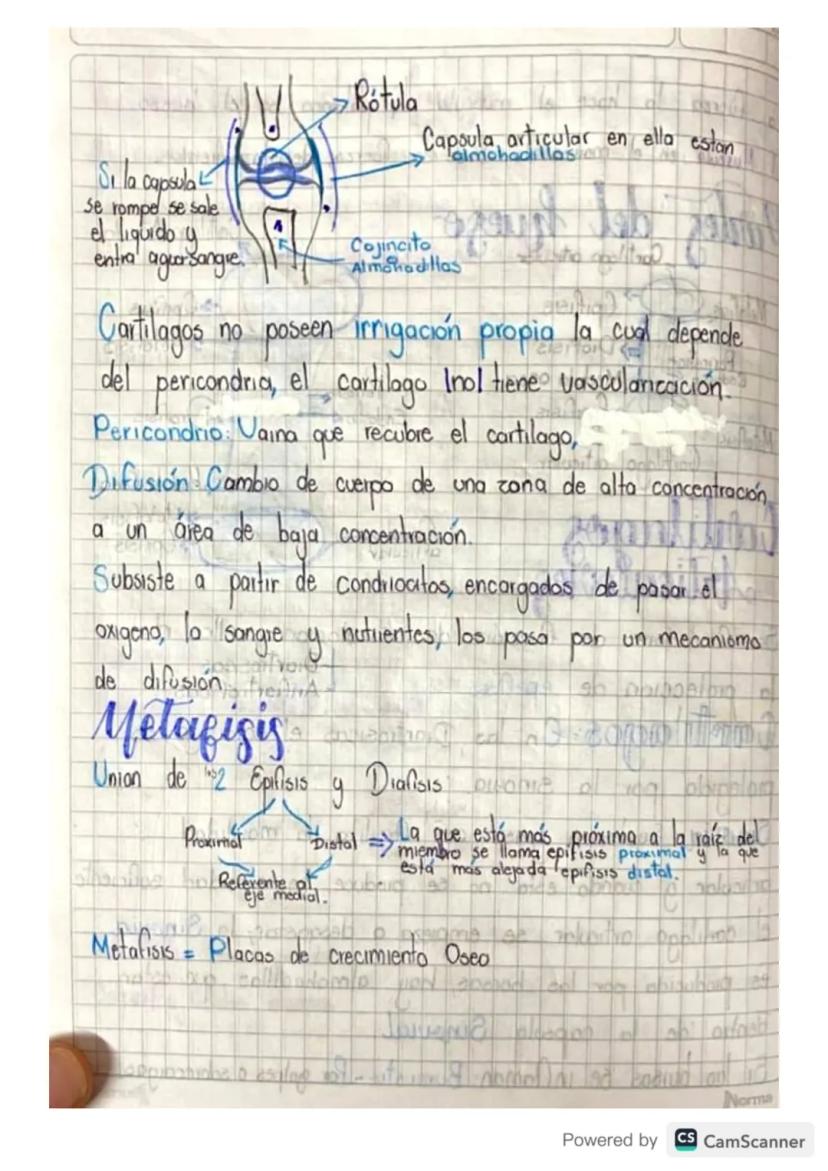 Rótula
Capsula articular en ella estan
almohadillas
Si la capsula
se rompe se sale
el liquido y
entra agua sangre.
Cojincito
Almohadillas
Cartilagos no poseen irrigación propia la cual depende
del pericondria, el cartilago |no| tiene vascularización.
Pericondrio: Vaina que recubre el cartilago,
Difusión: Cambio de cuerpo de una zona de alta concentración
a un área de baja concentración.
Subsiste a partir de condriocitos, encargados de pasar el
oxigeno, la sangre y nutrientes, los pasa por un mecanismo
de difusión
Metafisis
Union de 2 Epifisis y Diafisis
Proximal Distal ⇒ La que está más próxima a la raíz del
miembro se llama epifisis proximal y la que
está más alejada epifisis distal.
Referente al
eje medial.
Metafisis = Placas de crecimiento Oseo
Norma
Powered by CS CamScanner